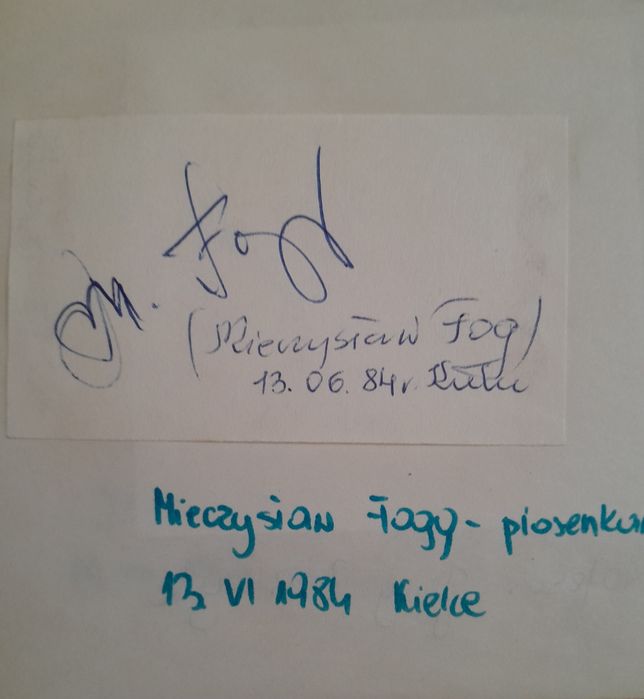 M. Fogg
(Mieczysław Fog)
13. 06. 84r. Kielce
Mieczysław Fogg - piosenkar
13 VI 1984 Kielce